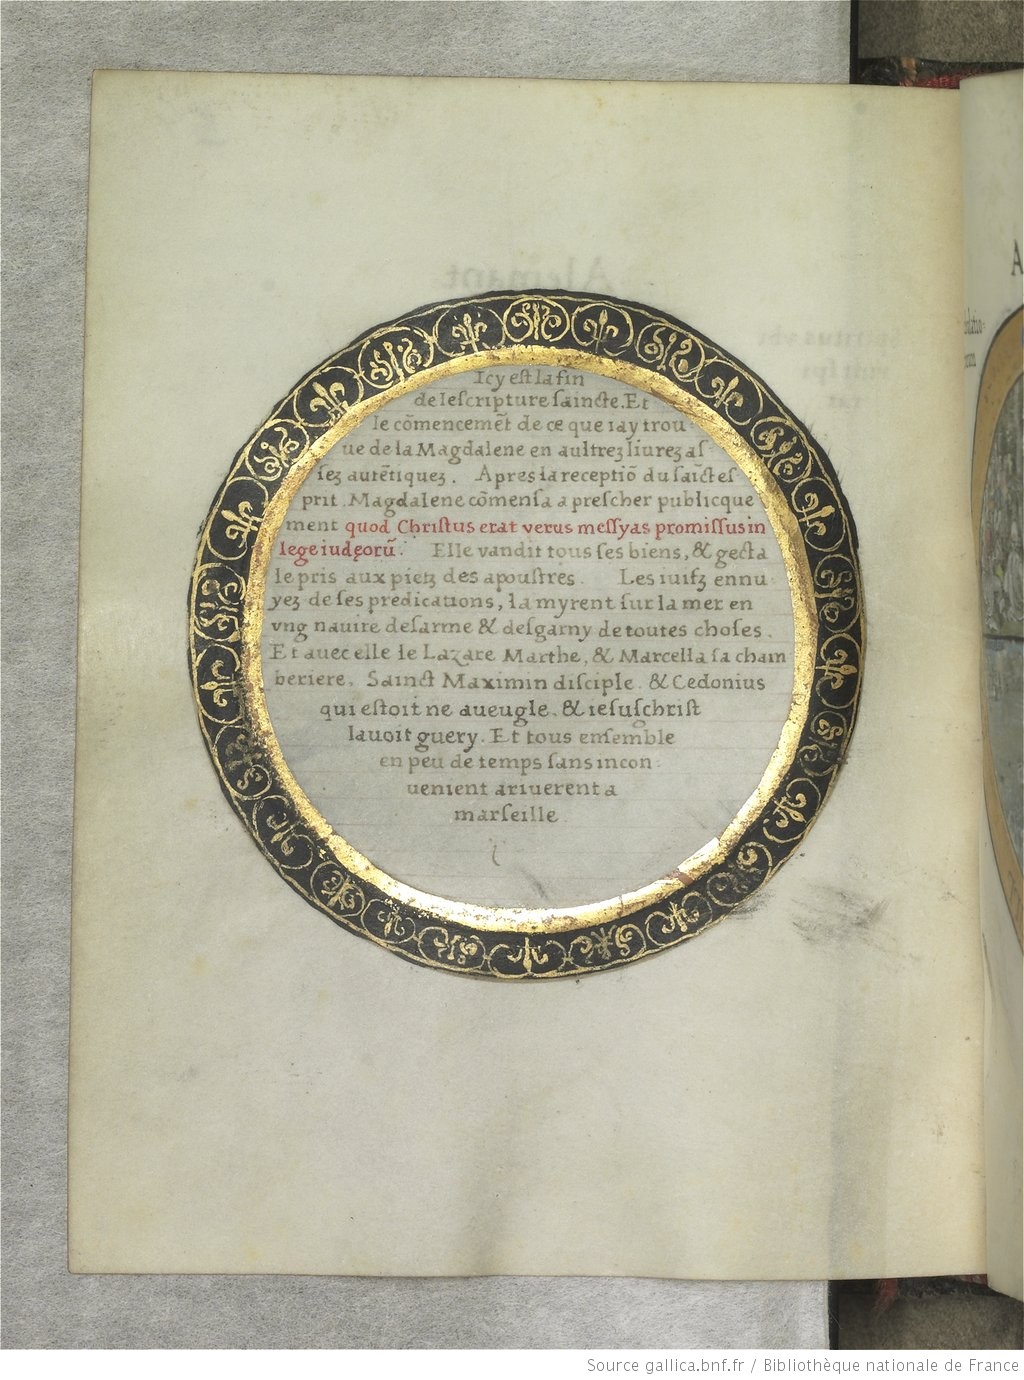 Icy est la fin
de lescripture saincte. Et
le cōmencemēt de ce que iay trou
ue de la Magdalene en aultrez liurez as
sez autētiquez. Apres la receptiō du saīct es
prit. Magdalene cōmensa a prescher publicque
ment quod Christus erat verus messyas promissus in
lege iudęorū. Elle vandit tous ses biens, & gecta
le pris aux pietz des apoustres. Les iuifz ennu
yez de ses predications, la myrent sur la mer en
vng nauire desarme & desgarny de toutes choses.
Et auec elle le Lazare Marthe, & Marcella sa cham
beriere. Sainct Maximin disciple. & Cedonius
qui estoit ne aueugle. & iesuschrist
lauoit guery. Et tous ensemble
en peu de temps sans incon
uenient ariuerent a
marseille
Source gallica.bnf.fr / Bibliothèque nationale de France